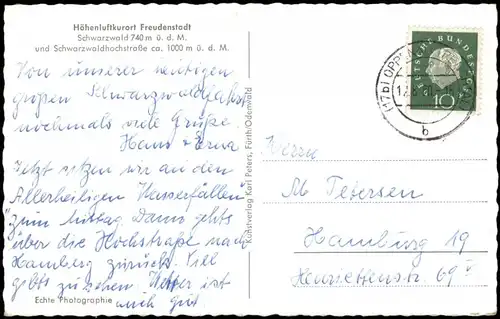 Höhenluftkurort Freudenstadt
Schwarzwald 740 m ü. d. M.
und Schwarzwaldhochstraße ca. 1000 m ü. d. M.
Von unserer heutigen
großen Schwarzwaldfahrt
nochmals viele Grüße.
Hans + Erna
Jetzt sitzen wir an den
Allerheiligen Wasserfällen
zum Mittag. Dann gehts
über die Hochstraße nach
Hamberg zurück. Viel
gibts zu sehen. Wetter ist
auch gut
Echte Photographie
Kunstverlag Karl Peters, Fürth/Odenwald
DEUTSCHE BUNDESPOST
10
(17b) OPPEN
b
Herrn
M Petersen
Hamburg 19
Henriettenstr 69